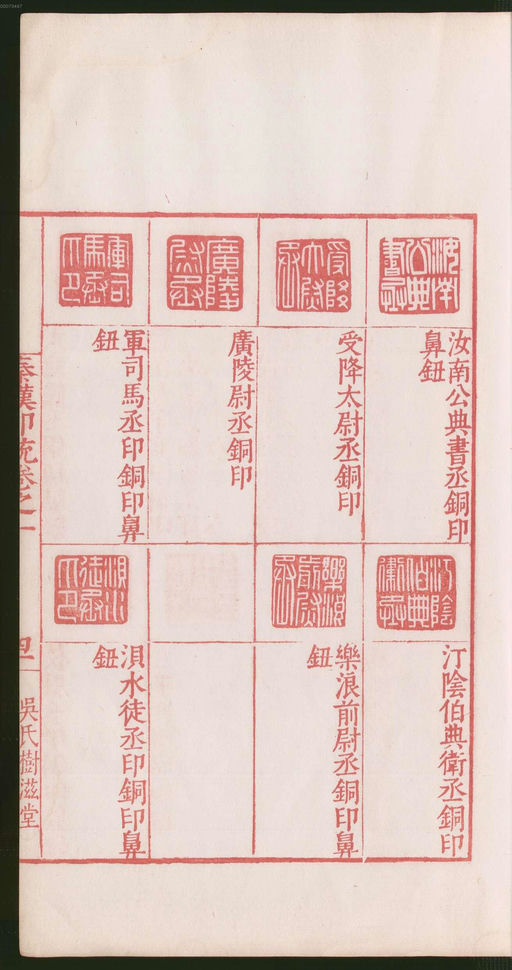 00079447
汝南公典書丞銅印
鼻鈕
受降太尉丞銅印
廣陵尉丞銅印
軍司馬丞印銅印鼻
鈕
汀陰伯典衛丞銅印
樂浪前尉丞銅印鼻
鈕
浿水徒丞印銅印鼻
鈕
秦漢印統卷之一
四一
吳氏樹滋堂